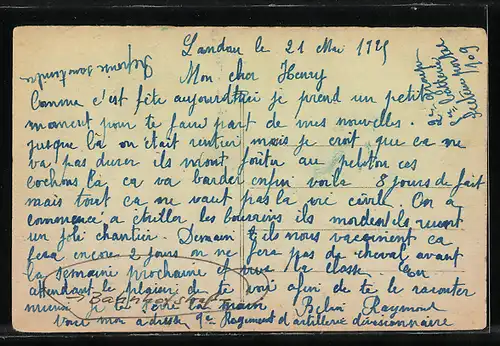 Landau le 21 Mai 1925
Mon cher Henry
Comme c'est fête aujourd'hui je prend un petit
moment pour te faire part de mes nouvelles.
jusque là on était rentier mais je croit que ca ne
va pas durer ils m'ont foutu au peloton ces
cochons là ca va barder enfin voila 8 jours de fait
mais tout ca ne vaut pas la vie civil. On a
commencé a étriller les bourrins ils mordent ils ruent
un joli chantier. Demain ils nous vaccinent ca
fera encore 2 jours on ne fera pas de cheval avant
la semaine prochaine et vive la classe. En
attendant le plaisir de te voir afin de te le raconter
mieux je te serre la main Belin Raymond
Voici mon adresse 9e Regiment d'artillerie divisionnaire
Réponse
2e
Bahnhofstraße